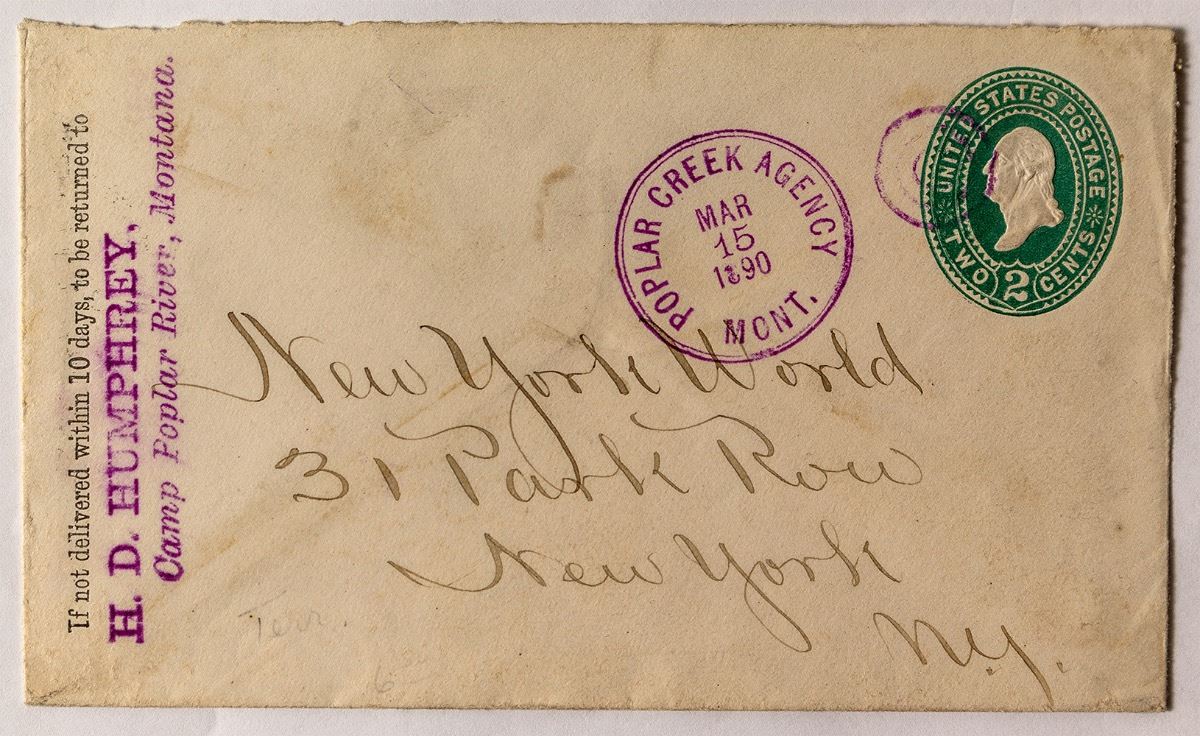 If not delivered within 10 days, to be returned to
H. D. HUMPHREY,
Camp Poplar River, Montana.
POPLAR CREEK AGENCY
MAR
15
1890
MONT.
UNITED STATES POSTAGE
TWO 2 CENTS
New York World
31 Park Row
New York
N.Y.
Terr.